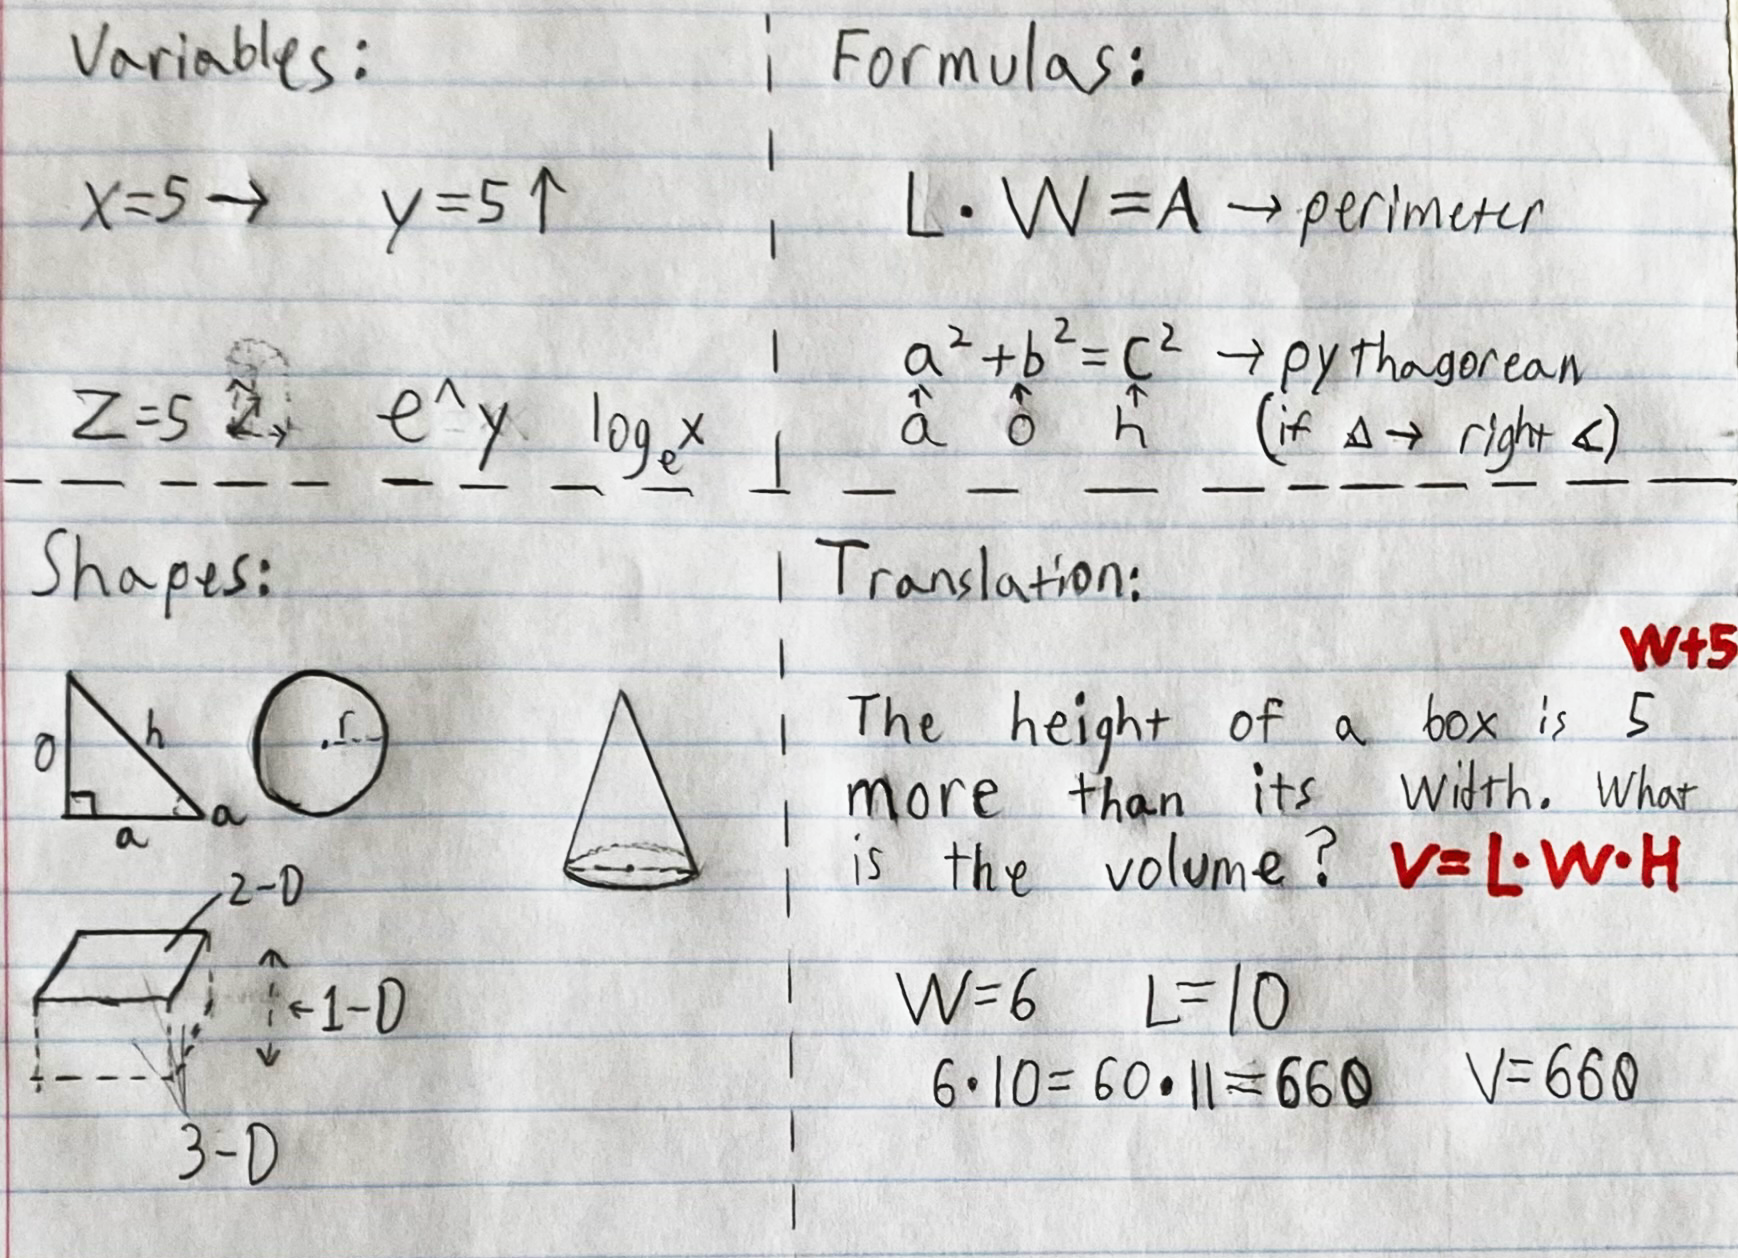 Variables:
x=5 → y=5↑
Z=5 e^y logₑx
Formulas:
L · W = A → perimeter
a² + b² = c² → pythagorean
↑ ↑ ↑
a o h (if △ → right ∡)
Shapes:
o h r
a a
2-D
←1-D
3-D
Translation:
W+5
The height of a box is 5
more than its width. What
is the volume? V=L·W·H
W=6 L=10
6·10=60·11=660 V=660